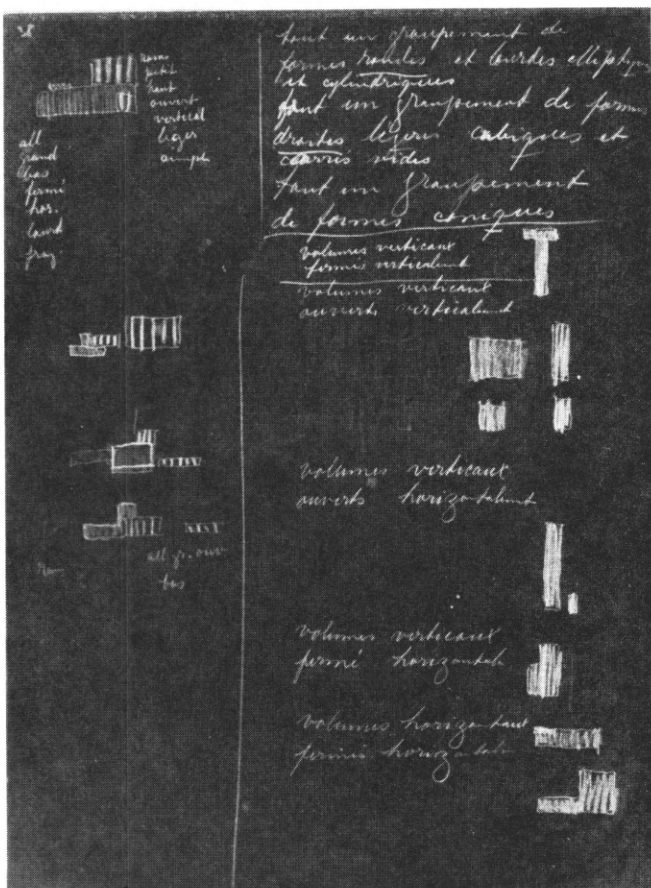 38
petit
haut
ouvert
vertical
léger
all
grand
bas
fermé
hor.
lourd
all gr. ouv
bas
tout un groupement de
formes rondes et courbes elliptiques
et cylindriques
tout un groupement de formes
droites légères cubiques et
carrés vides
tout un groupement
de formes coniques
volumes verticaux
fermés verticalement
volumes verticaux
ouverts verticalement
volumes verticaux
ouverts horizontalement
volumes verticaux
fermé horizontale
volumes horizontaux
fermés horizontale